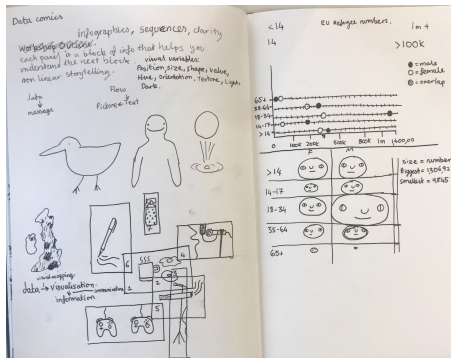 Data comics
infographics, sequences, clarity
each panel is a block of info that helps you
understand the next block.
non linear storytelling.
visual variables:
Position, size, shape, value,
Hue, orientation, Texture, Light,
Dark.
data
message
Flow
Picture Text
6
4
3
2
1
5
visual mapping
data → visualisation
information
communication
<14
EU Refugee numbers.
1m+
14
>100k
= male
= female
= overlap
65+
35-64
18-34
14-17
>14
0 100k 200k 500k 800k 1m 1400,00
F M
>14
14-17
18-34
35-64
65+
size = number
Biggest =
smallest = 9845